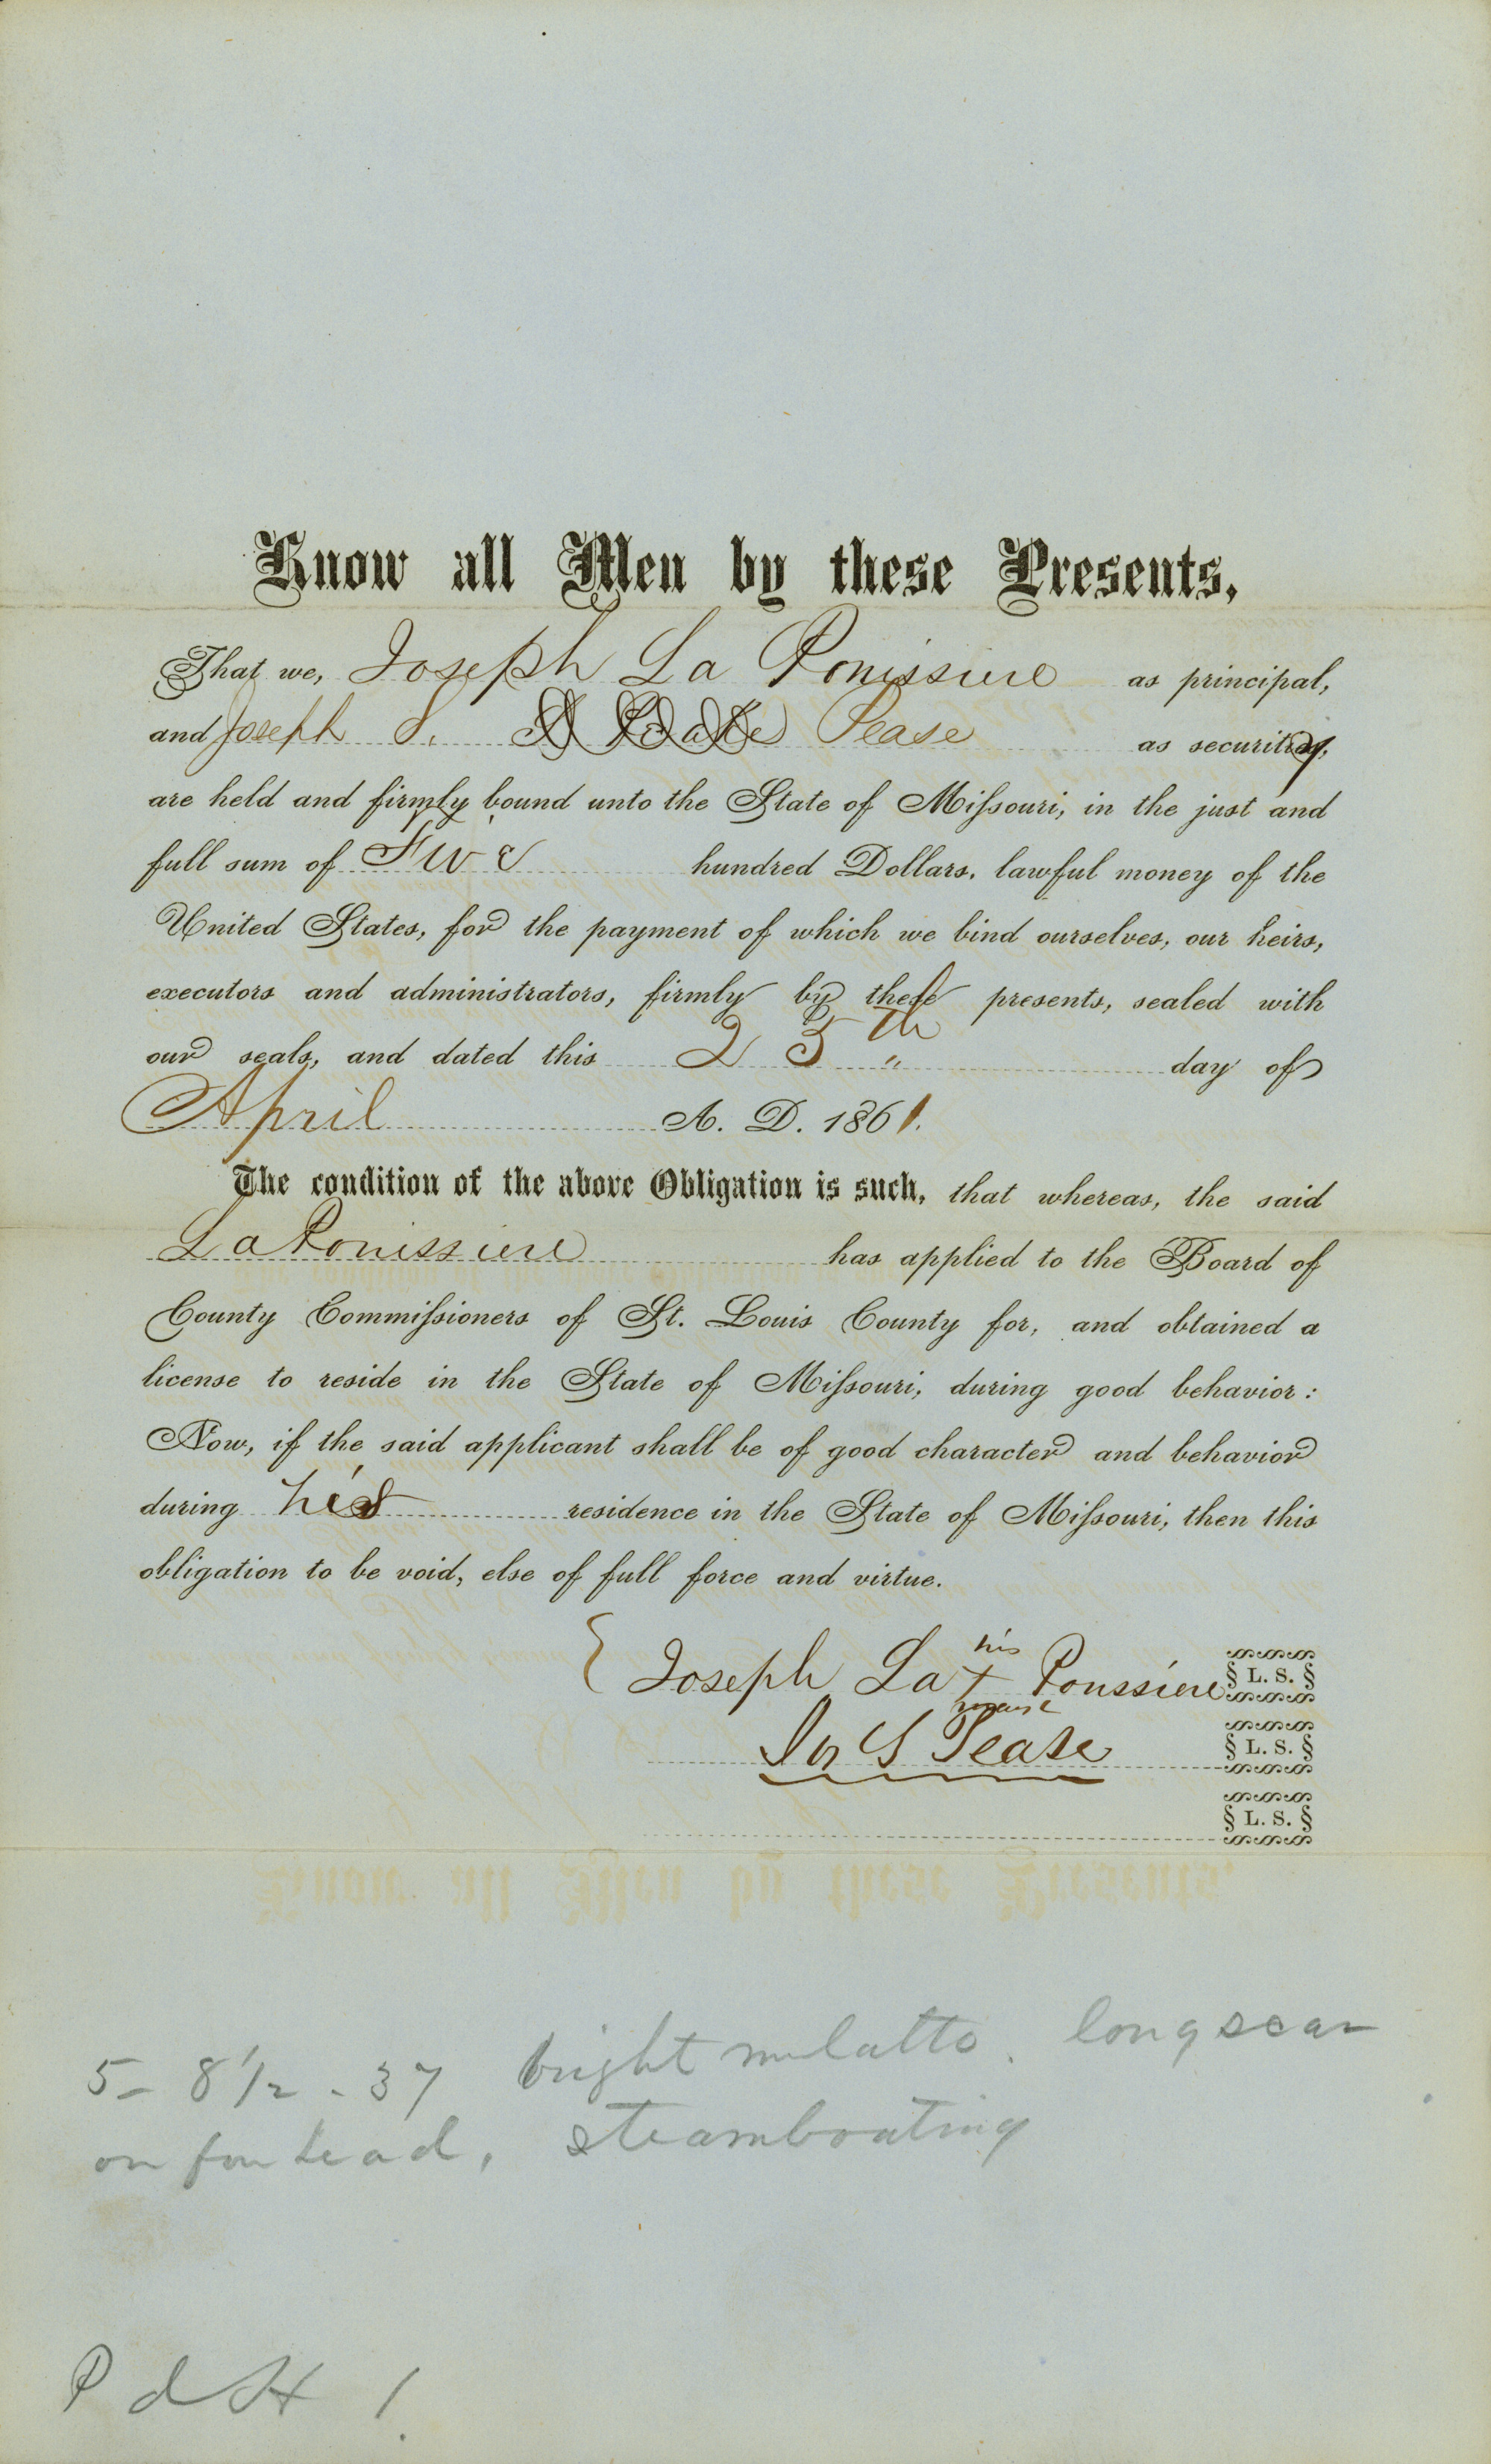 Know all Men by these Presents,
That we, Joseph La Ponissiere as principal,
and Joseph S. Pease as security,
are held and firmly bound unto the State of Missouri, in the just and
full sum of Five hundred Dollars, lawful money of the
United States, for the payment of which we bind ourselves, our heirs,
executors and administrators, firmly by these presents, sealed with
our seals, and dated this 25th day of
April A. D. 1861.
The condition of the above Obligation is such, that whereas, the said
La Ponissiere has applied to the Board of
County Commissioners of St. Louis County for, and obtained a
license to reside in the State of Missouri, during good behavior:
Now, if the said applicant shall be of good character and behavior
during his residence in the State of Missouri, then this
obligation to be void, else of full force and virtue.
his
Joseph La + Poussiere L. S.
mark
Jos S Pease L. S.
L. S.
5 - 8 1/2 - 37 bright mulatto. long scar
on forehead, steamboating
P d H 1